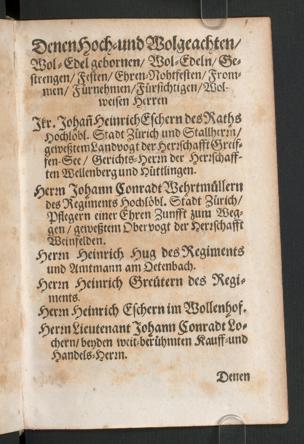 Denen Hoch-und Wolgeachten/
Wol-Edel gebornen/ Wol-Edeln/ Ge-
strengen/ Festen/ Ehren-Nohtfesten/ From-
men/ Fürnehmen/ Fürsichtigen/ Wol-
weisen Herren
Jkr. Johañ Heinrich Eschern des Raths
Hochlöbl. Stadt Zürich und Stallherrn/
geweßtem Landvogt der Herrschafft Greif-
fen-See/ Gerichts-Herrn der Herrschaff-
ten Wellenberg und Hüttlingen.
Herrn Johann Conradt Wehrtmüllern
des Regiments Hochlöbl. Stadt Zürich/
Pflegern einer Ehren Zunfft zum Weg-
gen/ geweßtem Obervogt der Herrschafft
Weinfelden.
Herrn Heinrich Hug des Regiments
und Amtmann am Oetenbach.
Herrn Heinrich Greütern des Regi-
ments.
Herrn Heinrich Eschern im Wollenhof.
Herrn Lieutenant Johann Conradt Lo-
chern/ beyden weit-berühmten Kauff-und
Handels-Herrn.
Denen